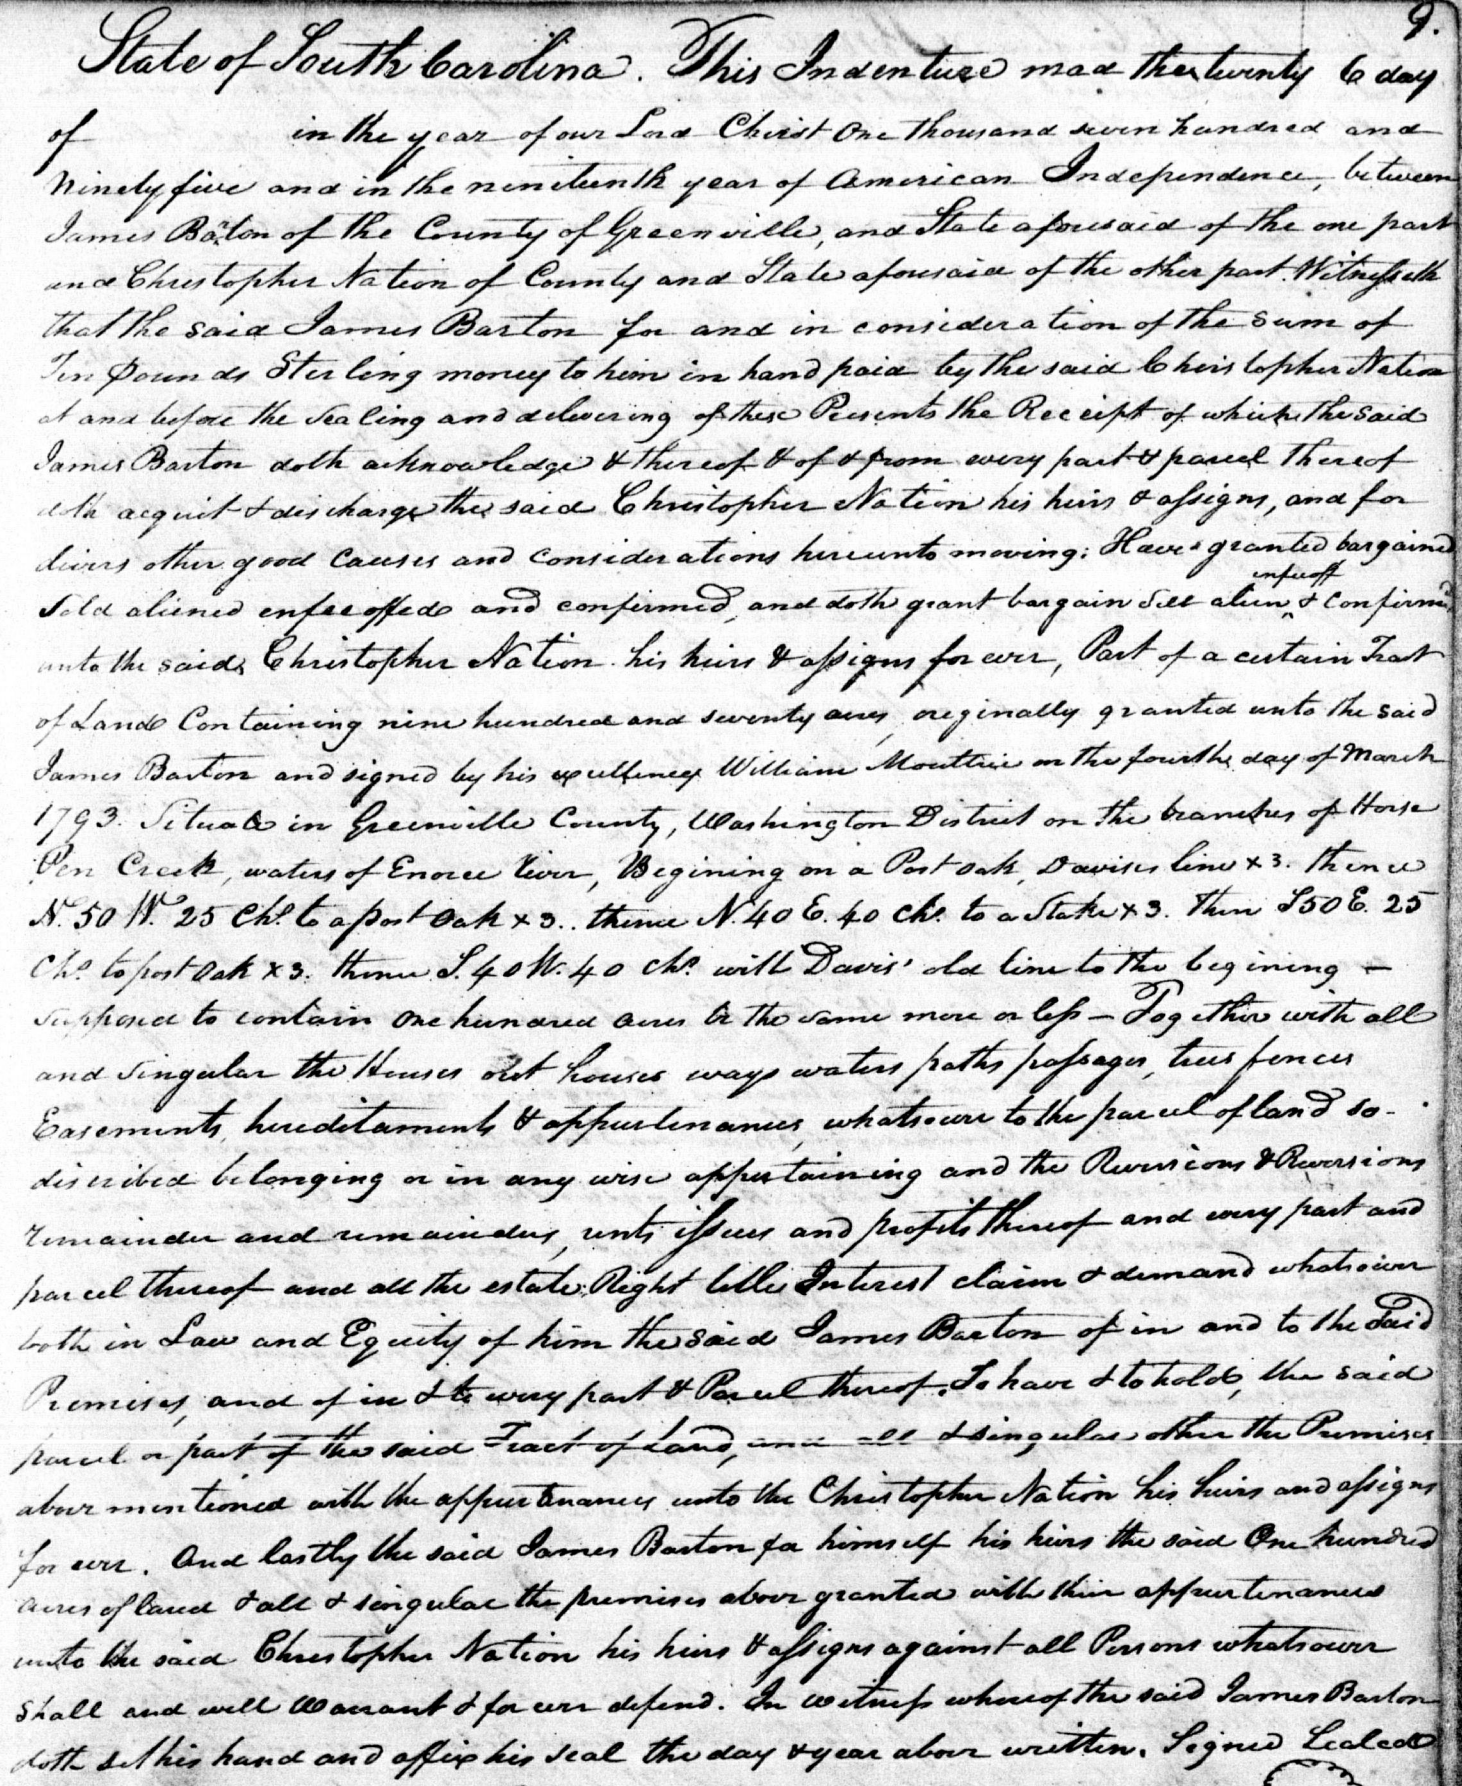 9.
State of South Carolina. This Indenture mad the twenty 6 day
of in the year of our Lord Christ One thousand seven hundred and
Ninety five and in the nineteenth year of American Independence, between
James Barton of the County of Greenville, and State aforesaid of the one part
and Christopher Nation of County and State aforesaid of the other part. Witnesseth
that the said James Barton for and in consideration of the sum of
Ten Pounds Sterling money to him in hand paid by the said Christopher Nation
at and before the Sealing and delivering of these Presents the Receipt of which the said
James Barton doth acknowledge & thereof & of & from every part & parcel thereof
doth acquit & discharge the said Christopher Nation his heirs & assigns, and for
divers other good Causes and Considerations hereunto moving: Have granted bargained
enfeoff
Sold aliened enfeeoffed and confirmed, and doth grant bargain Sell alien ^ & Confirmd,
unto the said Christopher Nation his heirs & assigns for ever, Part of a certain Tract
of Land Containing nine hundred and seventy acres, originally granted unto the said
James Barton and signed by his excellency William Moultrie on the fourth day of March
1793. Situate in Greenville County, Washington District on the branches of Horse
Pen Creek, waters of Enoree River, Begining on a Post oak, Davises line x 3. thence
N. 50 W. 25 Chs. to a post Oak x 3. thence N. 40 E. 40 Chs. to a Stake x 3. Then S50 E. 25
Chs. to post Oak x 3. thence S. 40 W. 40 Chs. with Davis' old line to the begining -
supposed to contain One hundred acres be the same more or less - Together with all
and Singular the Houses out houses ways waters paths passages, trees fences
Easements, hereditaments & appurtenances, whatsoever to the parcel of land so -
discribed belonging or in any wise appertaining and the Reversions & Reversions
remainder and remainders, rents issues and profits thereof and every part and
parcel thereof and all the estate Right title Interest claim & demand whatsoever
both in Law and Equity of him the said James Barton of in and to the Said
Premises, and of in & to every part & Parcel thereof. To have & to hold, the said
parcel or part of the said Tract of Land, and all & singular other the Premises
above mentioned with the appurtenances unto the Christopher Nation his heirs and assigns
for ever. And lastly the said James Barton for himself his heirs the said One hundred
acres of land & all & singular the premises above granted with their appurtenances
unto the said Christopher Nation his heirs & assigns against all Persons whatsoever
Shall and will Warrant & for ever defend. In witness whereof the said James Barton
doth set his hand and affix his seal the day & year above written. Signed Sealed